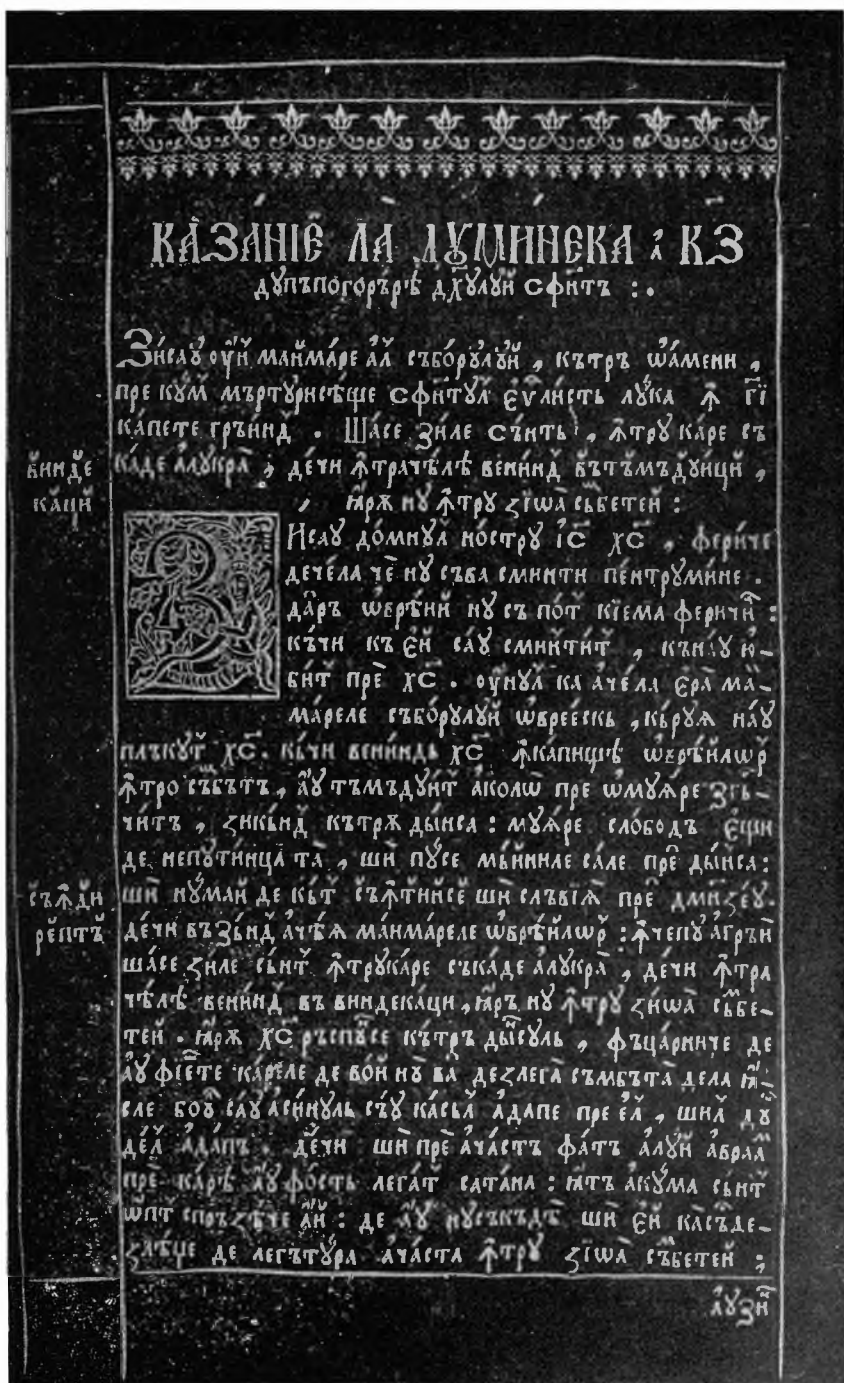 КАЗАНІЕ ЛА ДꙊМИНЕКА А КЗ
дꙋпъпогорѫрѣ дх҃ꙋлꙋй сфи́тъ :.
Зи́саꙋ оу҆́н маймаре а҆л съборꙋлꙋй , кътръ ѡ҆амени ,
прекꙋ́м мъртꙋрисѣ́ще сфи́тꙋл є҆ѵ҃листъ лꙋ́ка ꙟ҆ гі҃
ка́пете грѣи́нд . Ша́се ѕи́ле сѫ́нтъ , ꙟ҆трꙋ каре съ
ка́де а҆лꙋкра̀ , де́чи ꙟ҆трачѣлѣ вени́нд въ тъмъдꙋи́ци ,
винде
каци
ꙗ҆рѫ нꙋ ꙟ҆трꙋ ꙁіѡа̀ съ́бетей :
Зисаꙋ до́мнꙋл но́стрꙋ іс҃ хс҃ , фери́че
дече́ла че нꙋ съва сминти пе́нтрꙋмине .
да́ръ ѡ҆врѣ́ий нꙋ съ пот кіема феричи́ :
къ́чи къ є҆й саꙋ смінтит , къ наꙋ ю҆-
бит пре хс҃ . оу҆́нꙋл ка аче́ла є҆ра̀ ма-
ма́реле съборꙋлꙋй ѡ҆вреескъ , кърꙋѧ на́ꙋ
плъкꙋ́т хс҃ . къ́чи вени́ндъ хс҃ ꙟ҆капищѣ ѡ҆врѣи́лѡр
ꙟ҆тро съ́бътъ , а҆ꙋ тъмъдꙋи́т аколѡ̀ пре ѡ҆мꙋѧ́ре ѕгъ-
чи́тъ , ꙁикѫ́нд кътрѫ дѫ́нса : мꙋѧ́ре слободъ є҆щи
де непꙋти́нца та̀ , ши пꙋ́се мѫ́ниле са́ле пре дѫ́нса :
ши нꙋ́май де кѫт съꙟ҆ти́нсе ши слъві́ѧ пре дмн҃еꙁеꙋ .
съꙟ҆ди
рептъ
де́чи въꙁѫ́нд аче́ѧ маймареле ѡ҆врѣи́лѡр : ꙟ҆чепꙋ̀ а грѣи́
ша́се ꙁиле сѫнт ꙟ҆трꙋкаре съкаде а҆лꙋкра̀ , де́чи ꙟ҆тра
чѣлѣ вени́нд въ виндекаци , ꙗ҆ръ нꙋ ꙟ҆трꙋ ꙁиѡа̀ съ́бе-
тей . ꙗ҆рѫ хс҃ ръспꙋ́се кътръ дѫ́нсꙋль , фъца́рниче де
а҆ꙋ фіе́ще ка́реле де во́й нꙋ ва̀ деꙁлега̀ съмбъта̀ дела ꙗ҆-
сле боꙋ саꙋ а҆си́нꙋль съ́ꙋ касъл а҆да́пе пре є҆́л , шил дꙋ́
де́л а҆да́пъ . де́чи ши пре ача́стъ фа́тъ а҆лꙋ́й а҆враа́м
пре ка́рѣ а҆ꙋ фо́сть лега́т сата́на : ꙗ҆тъ а҆кꙋ́ма сѫнт
ѡ҆пт спръꙁѣ́че а҆́ни : де а҆ꙋ нꙋсъка́де ши є҆й ка съ́де-
ꙁлѣ́ще де легътꙋ́ра а҆ча́ста ꙟ҆трꙋ ꙁіѡа̀ съ́бетей :
а҆ꙋзи́